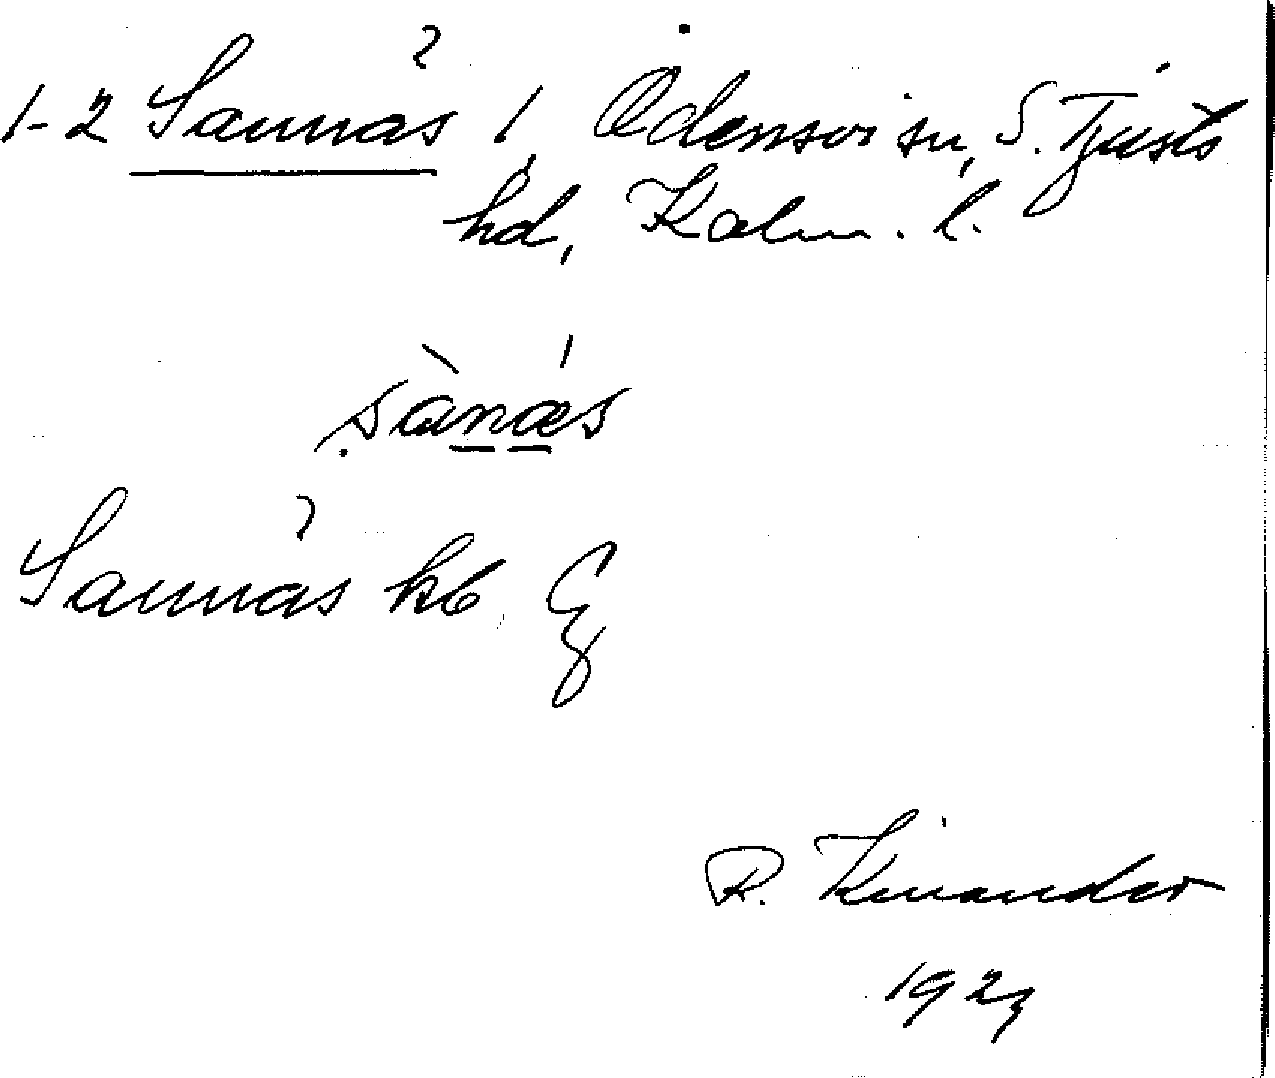 1-2 Sannås 1, Odensvi sn, S. Tjusts
hd, Kalm. l.
sànás
Sannås kb
R. Kinander
1923